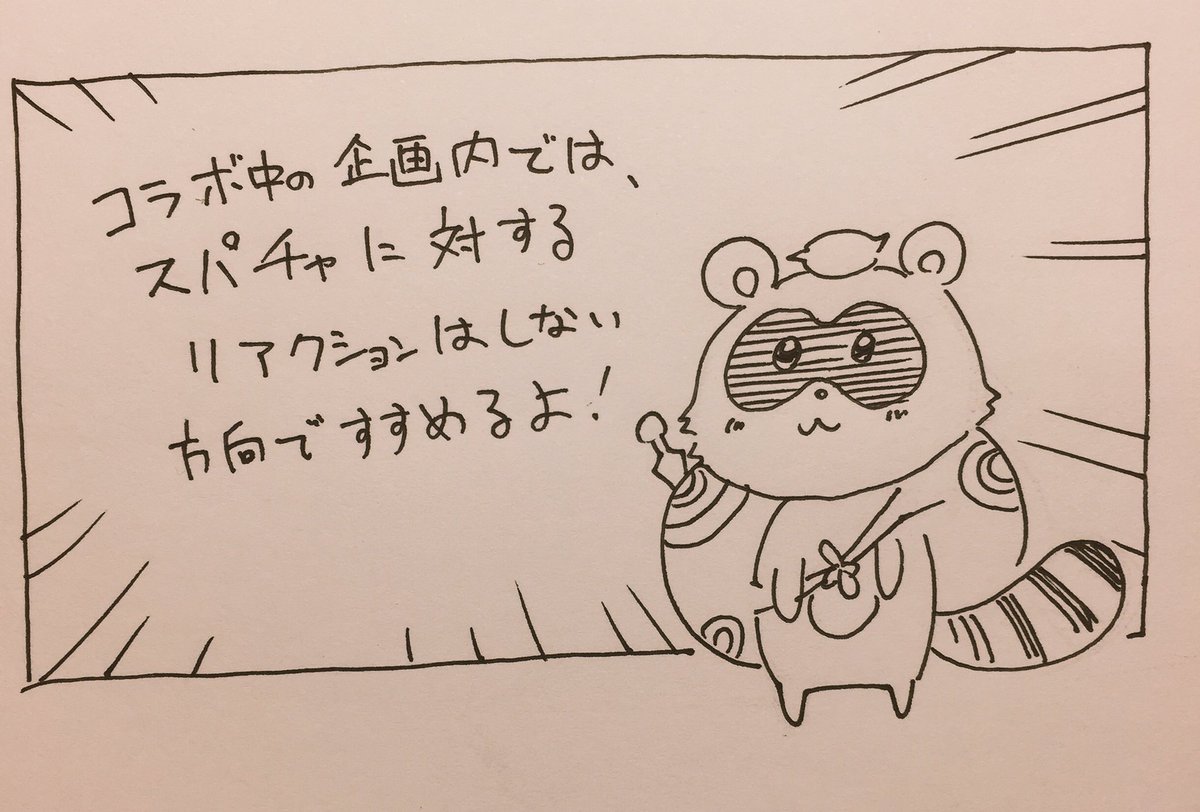 コラボ中の企画内では、
スパチャに対する
リアクションはしない
方向ですすめるよ!